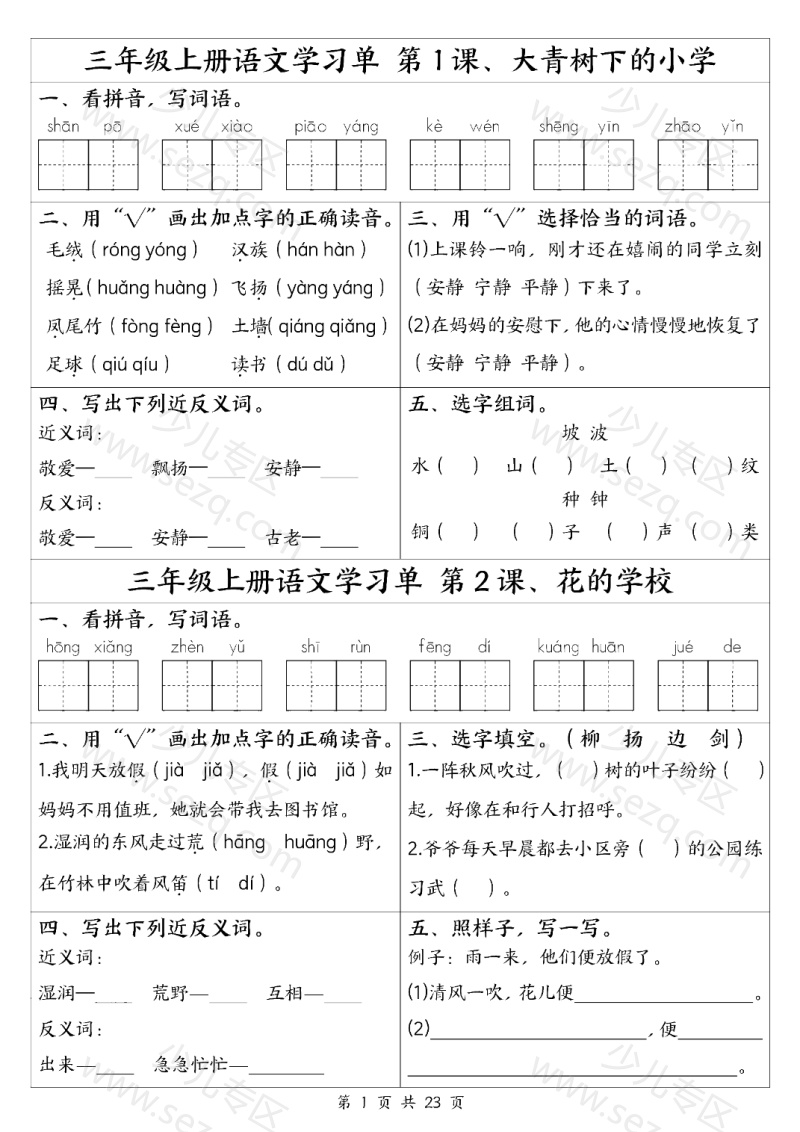 三年级上册语文学习单 第1课、大青树下的小学
一、看拼音，写词语。
shān pō xué xiào piāo yáng kè wén shēng yīn zhāo yǐn
二、用“√”画出加点字的正确读音。
毛绒（róng yóng） 汉族（hán hàn）
摇晃（huǎng huàng） 飞扬（yàng yáng）
凤尾竹（fòng fèng） 土墙（qiáng qiǎng）
足球（qiú qíu） 读书（dú dǔ）
三、用“√”选择恰当的词语。
(1)上课铃一响，刚才还在嬉闹的同学立刻
（安静 宁静 平静）下来了。
(2)在妈妈的安慰下，他的心情慢慢地恢复了
（安静 宁静 平静）。
四、写出下列近反义词。
近义词：
敬爱—____ 飘扬—____ 安静—____
反义词：
敬爱—____ 安静—____ 古老—____
五、选字组词。
坡 波
水（ ） 山（ ） 土（ ） （ ）纹
种 钟
铜（ ） （ ）子 （ ）声 （ ）类
三年级上册语文学习单 第2课、花的学校
一、看拼音，写词语。
hōng xiǎng zhèn yǔ shī rùn fēng dí kuáng huān jué de
二、用“√”画出加点字的正确读音。
1.我明天放假（jià jiǎ），假（jià jiǎ）如
妈妈不用值班，她就会带我去图书馆。
2.湿润的东风走过荒（hāng huāng）野，
在竹林中吹着风笛（tí dí）。
三、选字填空。（柳 扬 边 剑）
1.一阵秋风吹过，（ ）树的叶子纷纷（ ）
起，好像在和行人打招呼。
2.爷爷每天早晨都去小区旁（ ）的公园练
习武（ ）。
四、写出下列近反义词。
近义词：
湿润—____ 荒野—____ 互相—____
反义词：
出来—____ 急急忙忙—________
五、照样子，写一写。
例子：雨一来，他们便放假了。
(1)清风一吹，花儿便________________。
(2)____________________，便________
______________________________。
第 1 页 共 23 页
少儿专区
www.sezq.com
少儿专区
www.sezq.com
少儿专区
www.sezq.com
少儿专区
www.sezq.com
少儿专区
www.sezq.com
少儿专区
www.sezq.com
少儿专区
www.sezq.com
少儿专区
www.sezq.com